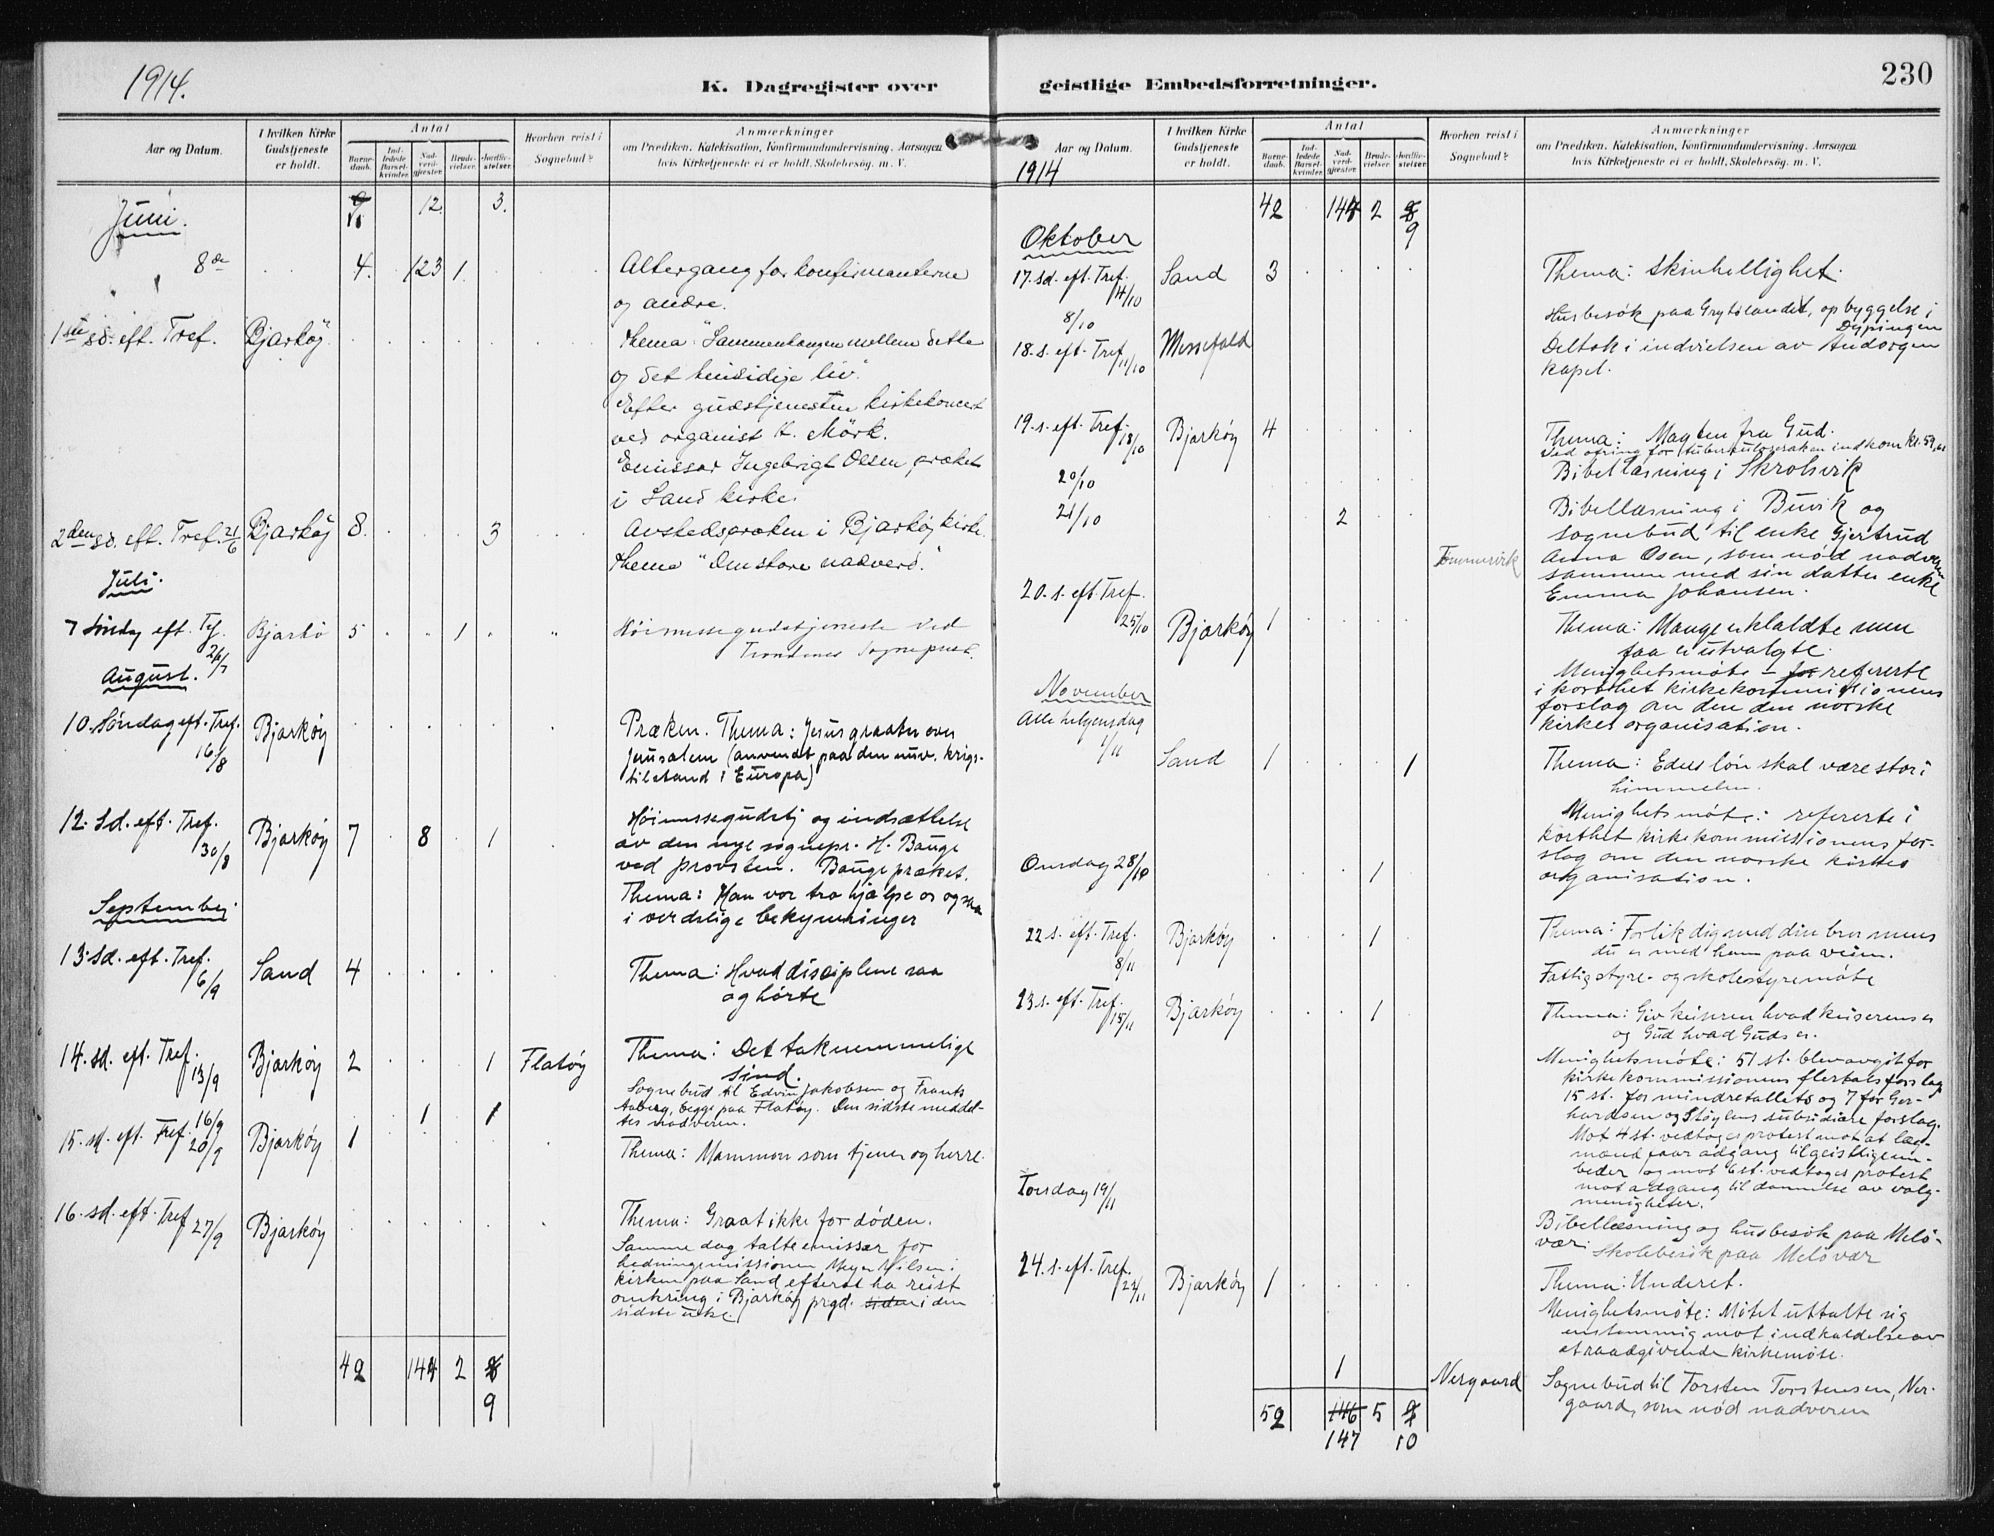 1914.
K. Dagregister over
Aar og Datum.
I hvilken Kirke
Gudstjeneste
er holdt.
Antal
Barne-
daab.
Ind-
ledede
Barsel-
kvinder.
Nad-
verd-
gjæster.
Brude-
vielser.
Jordfæ-
stelser.
Hvorhen reist i
Sognebud?
Anmærkninger
om Prædiken, Katekisation, Konfirmandundervisning, Aarsagen
hvis Kirketjeneste ei er holdt, Skolebesøg. m. V.
Juni. 12. 3.
8de 4. 123 1. Altergang for konfirmanterne
og andre.
1ste sd. eft. Tref. Bjarkö Thema "Sammenhængen mellem dette
og det hinsidige liv".
Efter gudstjenesten kirkekoncert
ved organist K. Mörk.
Emissær Ingebrigt Olsen præket
i Sand kirke.
2den sd. eft. Tref. 21/6 Bjarköy 8. 3 Avskedspræken i Bjarköy kirke.
Thema "Den store nadverd."
Juli.
7 Søndag eft. Tref. 26/7 Bjarkö 5 1 Höimessegudstjeneste ved
Trondenes Sogneprest.
August.
10. Søndag eft. Tref. 16/8 Bjarkøy Præken. Thema: Jesus graater over
Jerusalem (anvendt paa den nuv. krigs-
tilstand i Europa)
12. sd. eft. Tref. 30/8 Bjarkøy 7 8 1 Høimessegudstj og indsættelse
av den nye sognepr. H. Bauge
ved provsten. Bauge præket.
Thema: Han vor tro hjælpe os ogsaa
i verdslige bekymringer
September.
13. sd. eft. Tref. 6/9 Sand 4 Thema: Hvad disciplene saa
og hørte
14. sd. eft. Tref. 13/9 Bjarkøy 2 1 Flatøy Thema: Det taknemmelige
sind.
Sognebud til Edvin Jakobsen og Frants
Aaberg, begge paa Flatøy. Den sidste meddel-
tes nadveren.
16/9 1 1
15. sd. eft. Tref. 20/9 Bjarkøy 1 Thema: Mammon som tjener og herre.
16. sd. eft. Tref 27/9 Bjarkøy Thema: Graat ikke for døden.
Samme dag talte emissær for
hedningemissionen Meyer Nilsen i
kirken paa Sand efterat ha reist
omkring i Bjarkøy prgd. siden i den
sidste uke.
42 144 2 8
9
geistlige Embedsforretninger.
230
Aar og Datum.
1914
I hvilken Kirke
Gudstjeneste
er holdt.
Antal
Barne-
daab.
Ind-
ledede
Barsel-
kvinder.
Nad-
verd-
gjæster.
Brude-
vielser.
Jordfæ-
stelser.
Hvorhen reist i
Sognebud?
Anmærkninger
om Prædiken, Katekisation, Konfirmandundervisning, Aarsagen
hvis Kirketjeneste ei er holdt, Skolebesøg. m. V.
42 144 2 8
9
Oktober
17. sd. eft. Tref. 4/10 Sand 3 Thema: skinhellighet.
8/10 Husbesøk paa Grytölandet, opbyggelse i
Dypingen
18. s. eft. Tref 11/10 Messefald Deltok i indvielsen av Andorgen
kapel.
19. s. eft. Tref. 18/10 Bjarkøy 4 Thema: Magten fra Gud.
Ved ofring for tuberkulosesaken indkom kr. 59,
20/10 Bibellæsning i Skrolsvik
21/10 2 Bibellæsning i Buvik og
Tömmervik sognebud til enke Gjertrud
Anna Osen, som nød nadveren
sammen med sin datter enke
Emma Johansen.
20. s. eft. Tref. 25/10 Bjarkøy 1 Thema: Mange er kaldte men
faa er utvalgte.
Menighetsmøte – for refererte
i korthet kirkekommissionens
forslag om den den norske
kirkes organisation.
November
Alle helgensdag
1/11 Sand 1 1 Thema: Eders løn skal være stor i
himmelen.
Menighetsmøte: refererte i
korthet kirkekommissionens for-
slag om den norske kirkes
organisation.
Onsdag 28/10 1
22 s. eft. Tref. 8/11 Bjarkøy 1 Thema: Forlik dig med din bror mens
du er med ham paa veien.
Fattigstyre- og skolestyremøte
23 s. eft. Tref. 15/11 Bjarkøy 1 Thema: Giv keiseren hvad keiserens er
og Gud hvad Guds er.
Menighetsmøte: 51 st. blev avgit for
kirkekommissionens flertals forslag
15 st. for mindretallets og 7 for Ger-
hardsen og Støylens subsidiære forslag.
Mot 4 st. vedtoges protest mot at læg-
mænd faar adgang til geistlige em-
beder og mot 6 st. vedtoges protest
mot adgang til dannelse av valg-
menigheter.
Torsdag 19/11 Bibellæsning og husbesøk paa Melö-
vær. Skolebesök paa Melövær
24. s. eft. Tref. 22/11 Bjarkøy 1 Thema: Underet.
Menighetsmøte: Møtet uttalte sig
enstemmig mot indkaldelse av
et raadgivende kirkemøte.
1 Nergaard Sognebud til Torsten Torstensen, Ner-
gaard, som nød nadveren
52 146 5
147 10